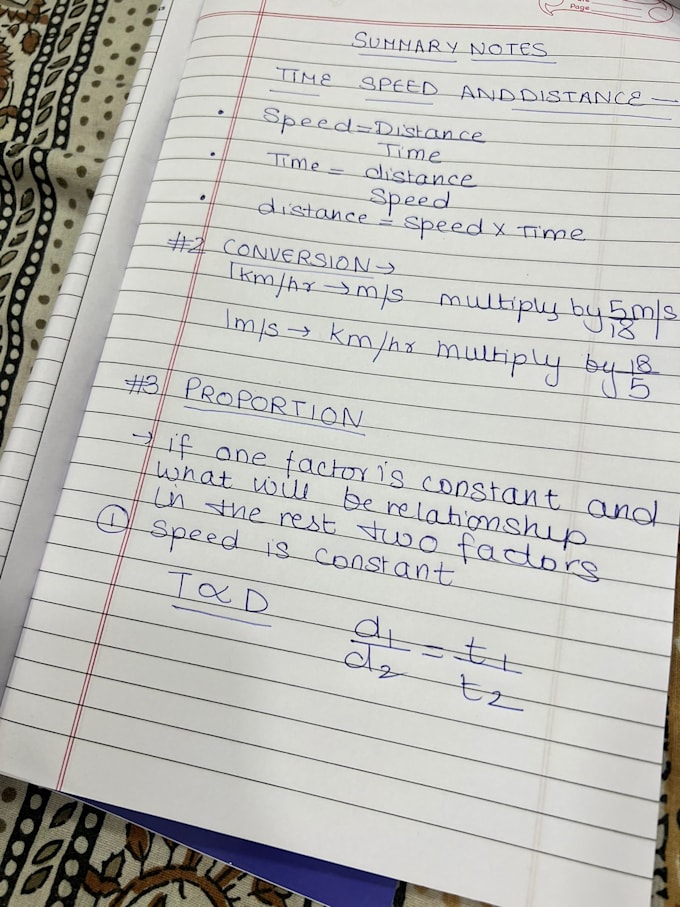 Page
SUMMARY NOTES
TIME SPEED AND DISTANCE —
• Speed = Distance
Time
• Time = distance
Speed
• distance = Speed x Time
#2 CONVERSION →
1km/hr → m/s multiply by 5/18 m/s
1m/s → km/hr multiply by 18/5
#3 PROPORTION
→ if one factor is constant and
what will be relationship
in the rest two factors
① Speed is constant
T ∝ D
d1/d2 = t1/t2